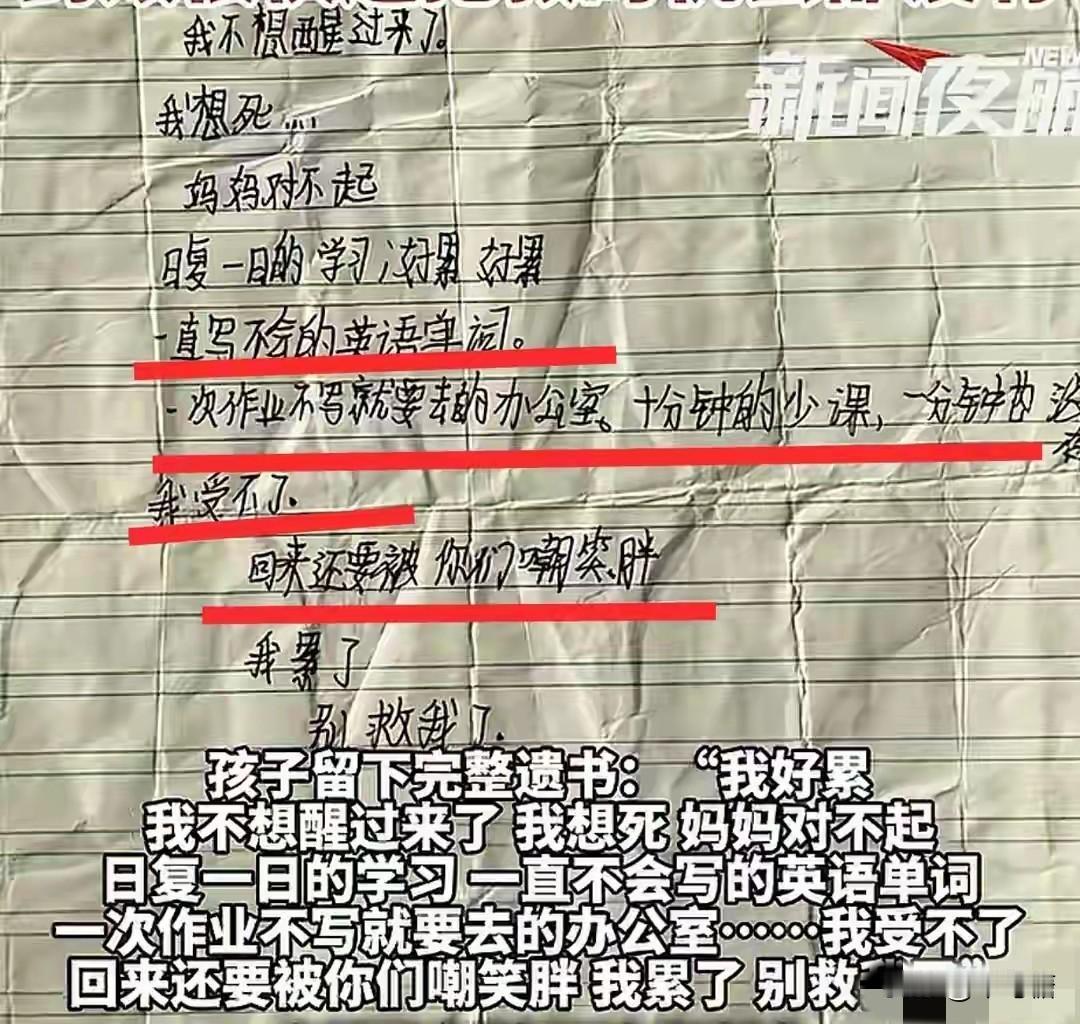 NEW
新闻夜航
我不想醒过来了。
我想死....
妈妈对不起
日复一日的学习,好累 好累
一直写不会的英语单词。
一次作业不写就要去的办公室。十分钟的少课,一分钟内没
我受不了.
回来还要被你们嘲笑胖
我累了
别救我了.
孩子留下完整遗书:“我好累
我不想醒过来了 我想死 妈妈对不起
日复一日的学习 一直不会写的英语单词
一次作业不写就要去的办公室……我受不了
回来还要被你们嘲笑胖 我累了 别救